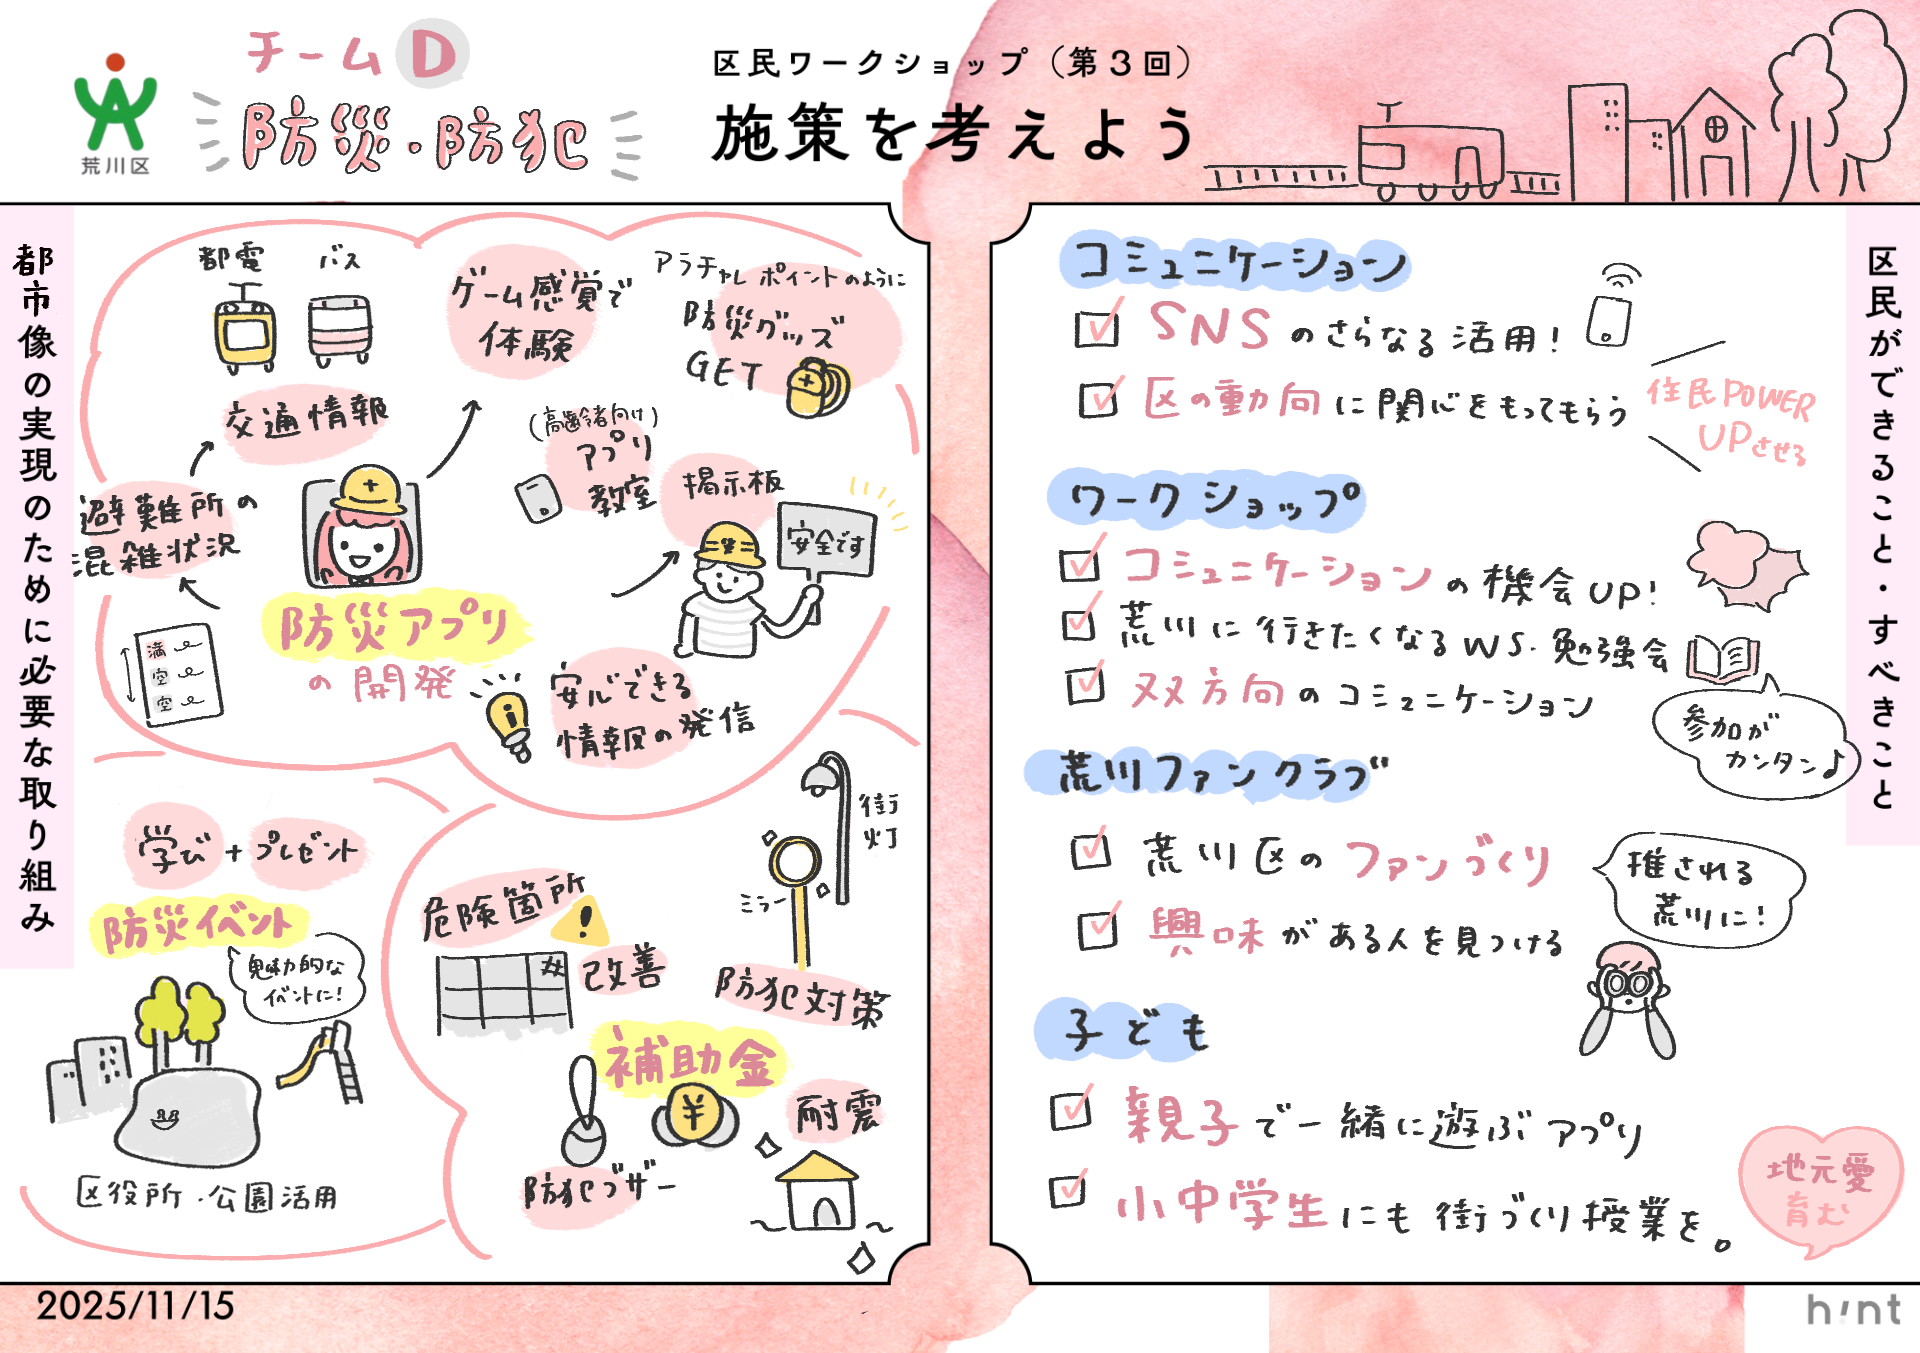 荒川区
チームD
防災・防犯
区民ワークショップ（第3回）
施策を考えよう
都市像の実現のために必要な取り組み
都電
バス
交通情報
ゲーム感覚で
体験
アラチャレポイントのように
防災グッズ
GET
(高齢者向け)
アプリ
教室
掲示板
安全です
避難所の
混雑状況
満
空
空
防災アプリ
の開発
i
安心できる
情報の発信
学び+プレゼント
防災イベント
魅力的な
イベントに!
区役所・公園活用
危険箇所
!
改善
街灯
ミラー
防犯対策
補助金
¥
防犯ブザー
耐震
区民ができること・すべきこと
コミュニケーション
SNSのさらなる活用!
区の動向に関心をもってもらう
住民POWER
UPさせる
ワークショップ
コミュニケーションの機会UP!
荒川に行きたくなるWS・勉強会
双方向のコミュニケーション
参加が
カンタン♪
荒川ファンクラブ
荒川区のファンづくり
興味がある人を見つける
推される
荒川に!
子ども
親子で一緒に遊ぶアプリ
小中学生にも街づくり授業を。
地元愛
育む
2025/11/15
h!nt